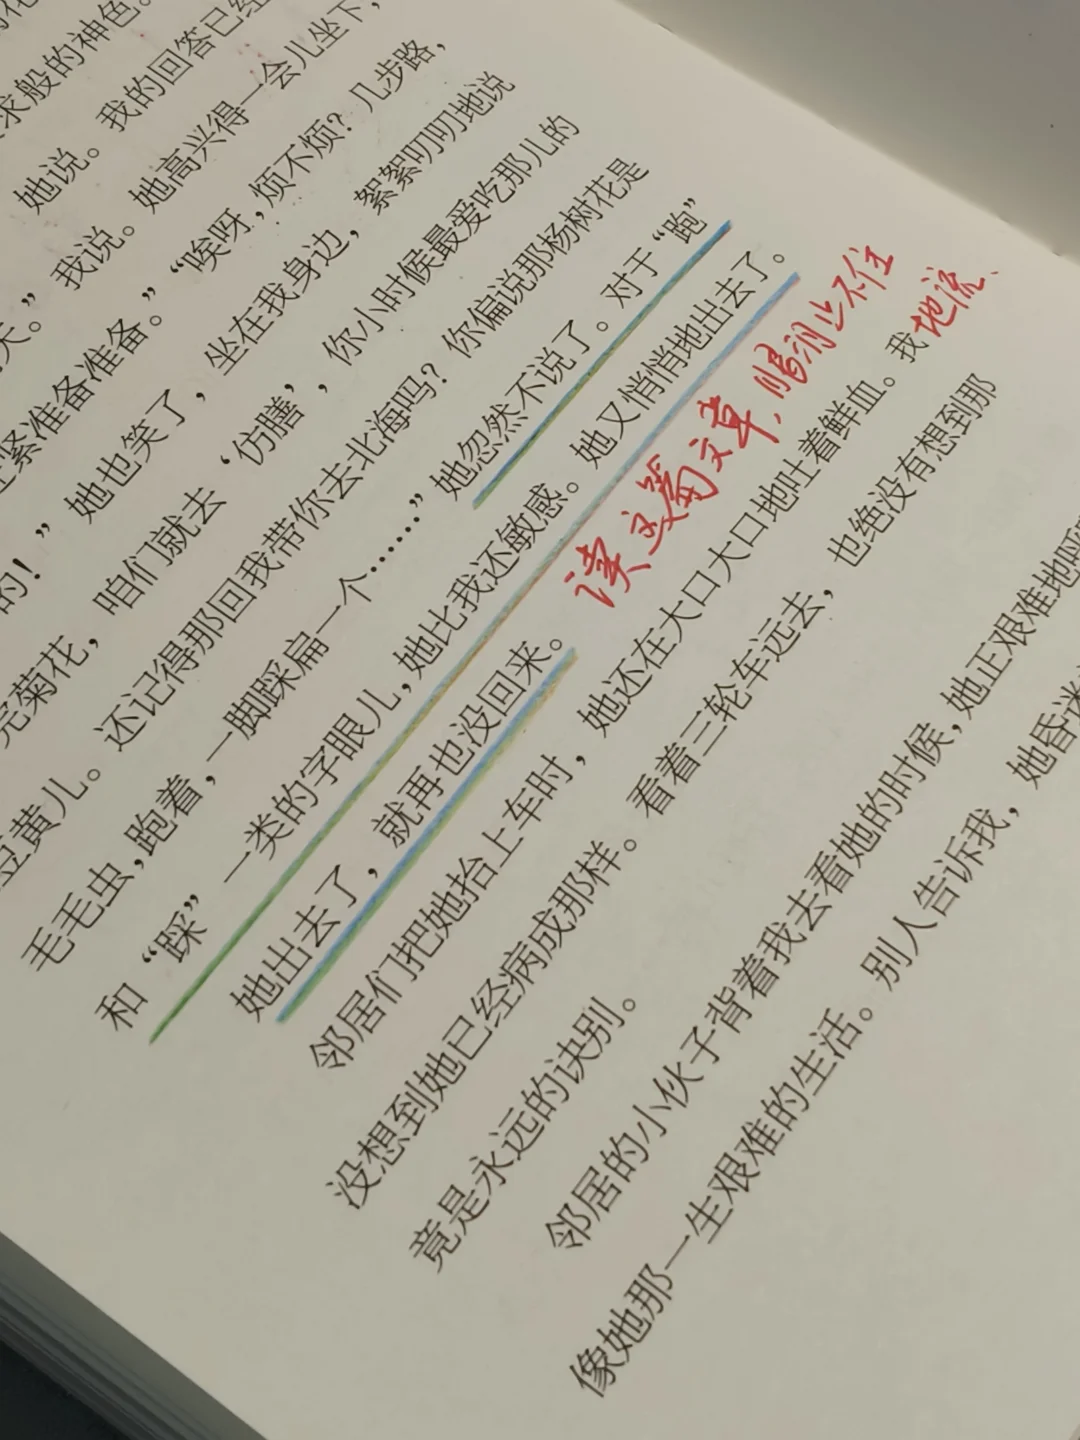 求般的神色。
她说。我的回答已经
天。”我说。她高兴得一会儿坐下，
紧准备准备。”“唉呀，烦不烦？几步路，
的！”她也笑了，坐在我身边，絮絮叨叨地说
完菊花，咱们就去‘仿膳’，你小时候最爱吃那儿的
豆黄儿。还记得那回我带你去北海吗？你偏说那杨树花是
毛毛虫，跑着，一脚踩扁一个……”她忽然不说了。对于“跑”
和“踩”一类的字眼儿，她比我还敏感。她又悄悄地出去了。
她出去了，就再也没回来。
读这篇文章，眼泪止不住地流、
邻居们把她抬上车时，她还在大口大口地吐着鲜血。我
没想到她已经病成那样。看着三轮车远去，也绝没有想到那
竟是永远的诀别。
邻居的小伙子背着我去看她的时候，她正艰难地呼
像她那一生艰难的生活。别人告诉我，她昏迷